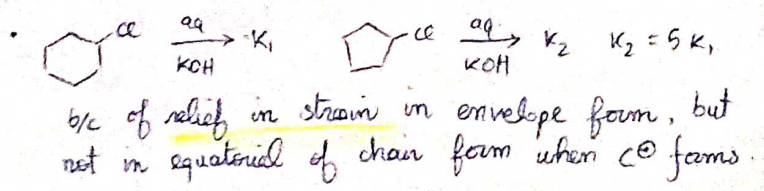 • Cl aq KCH → K₁ Cl aq. KOH → K₂ K₂ = 5 K₁
b/c of relief in strain in envelope form, but
not in equatorial of chair form when C⊕ forms.